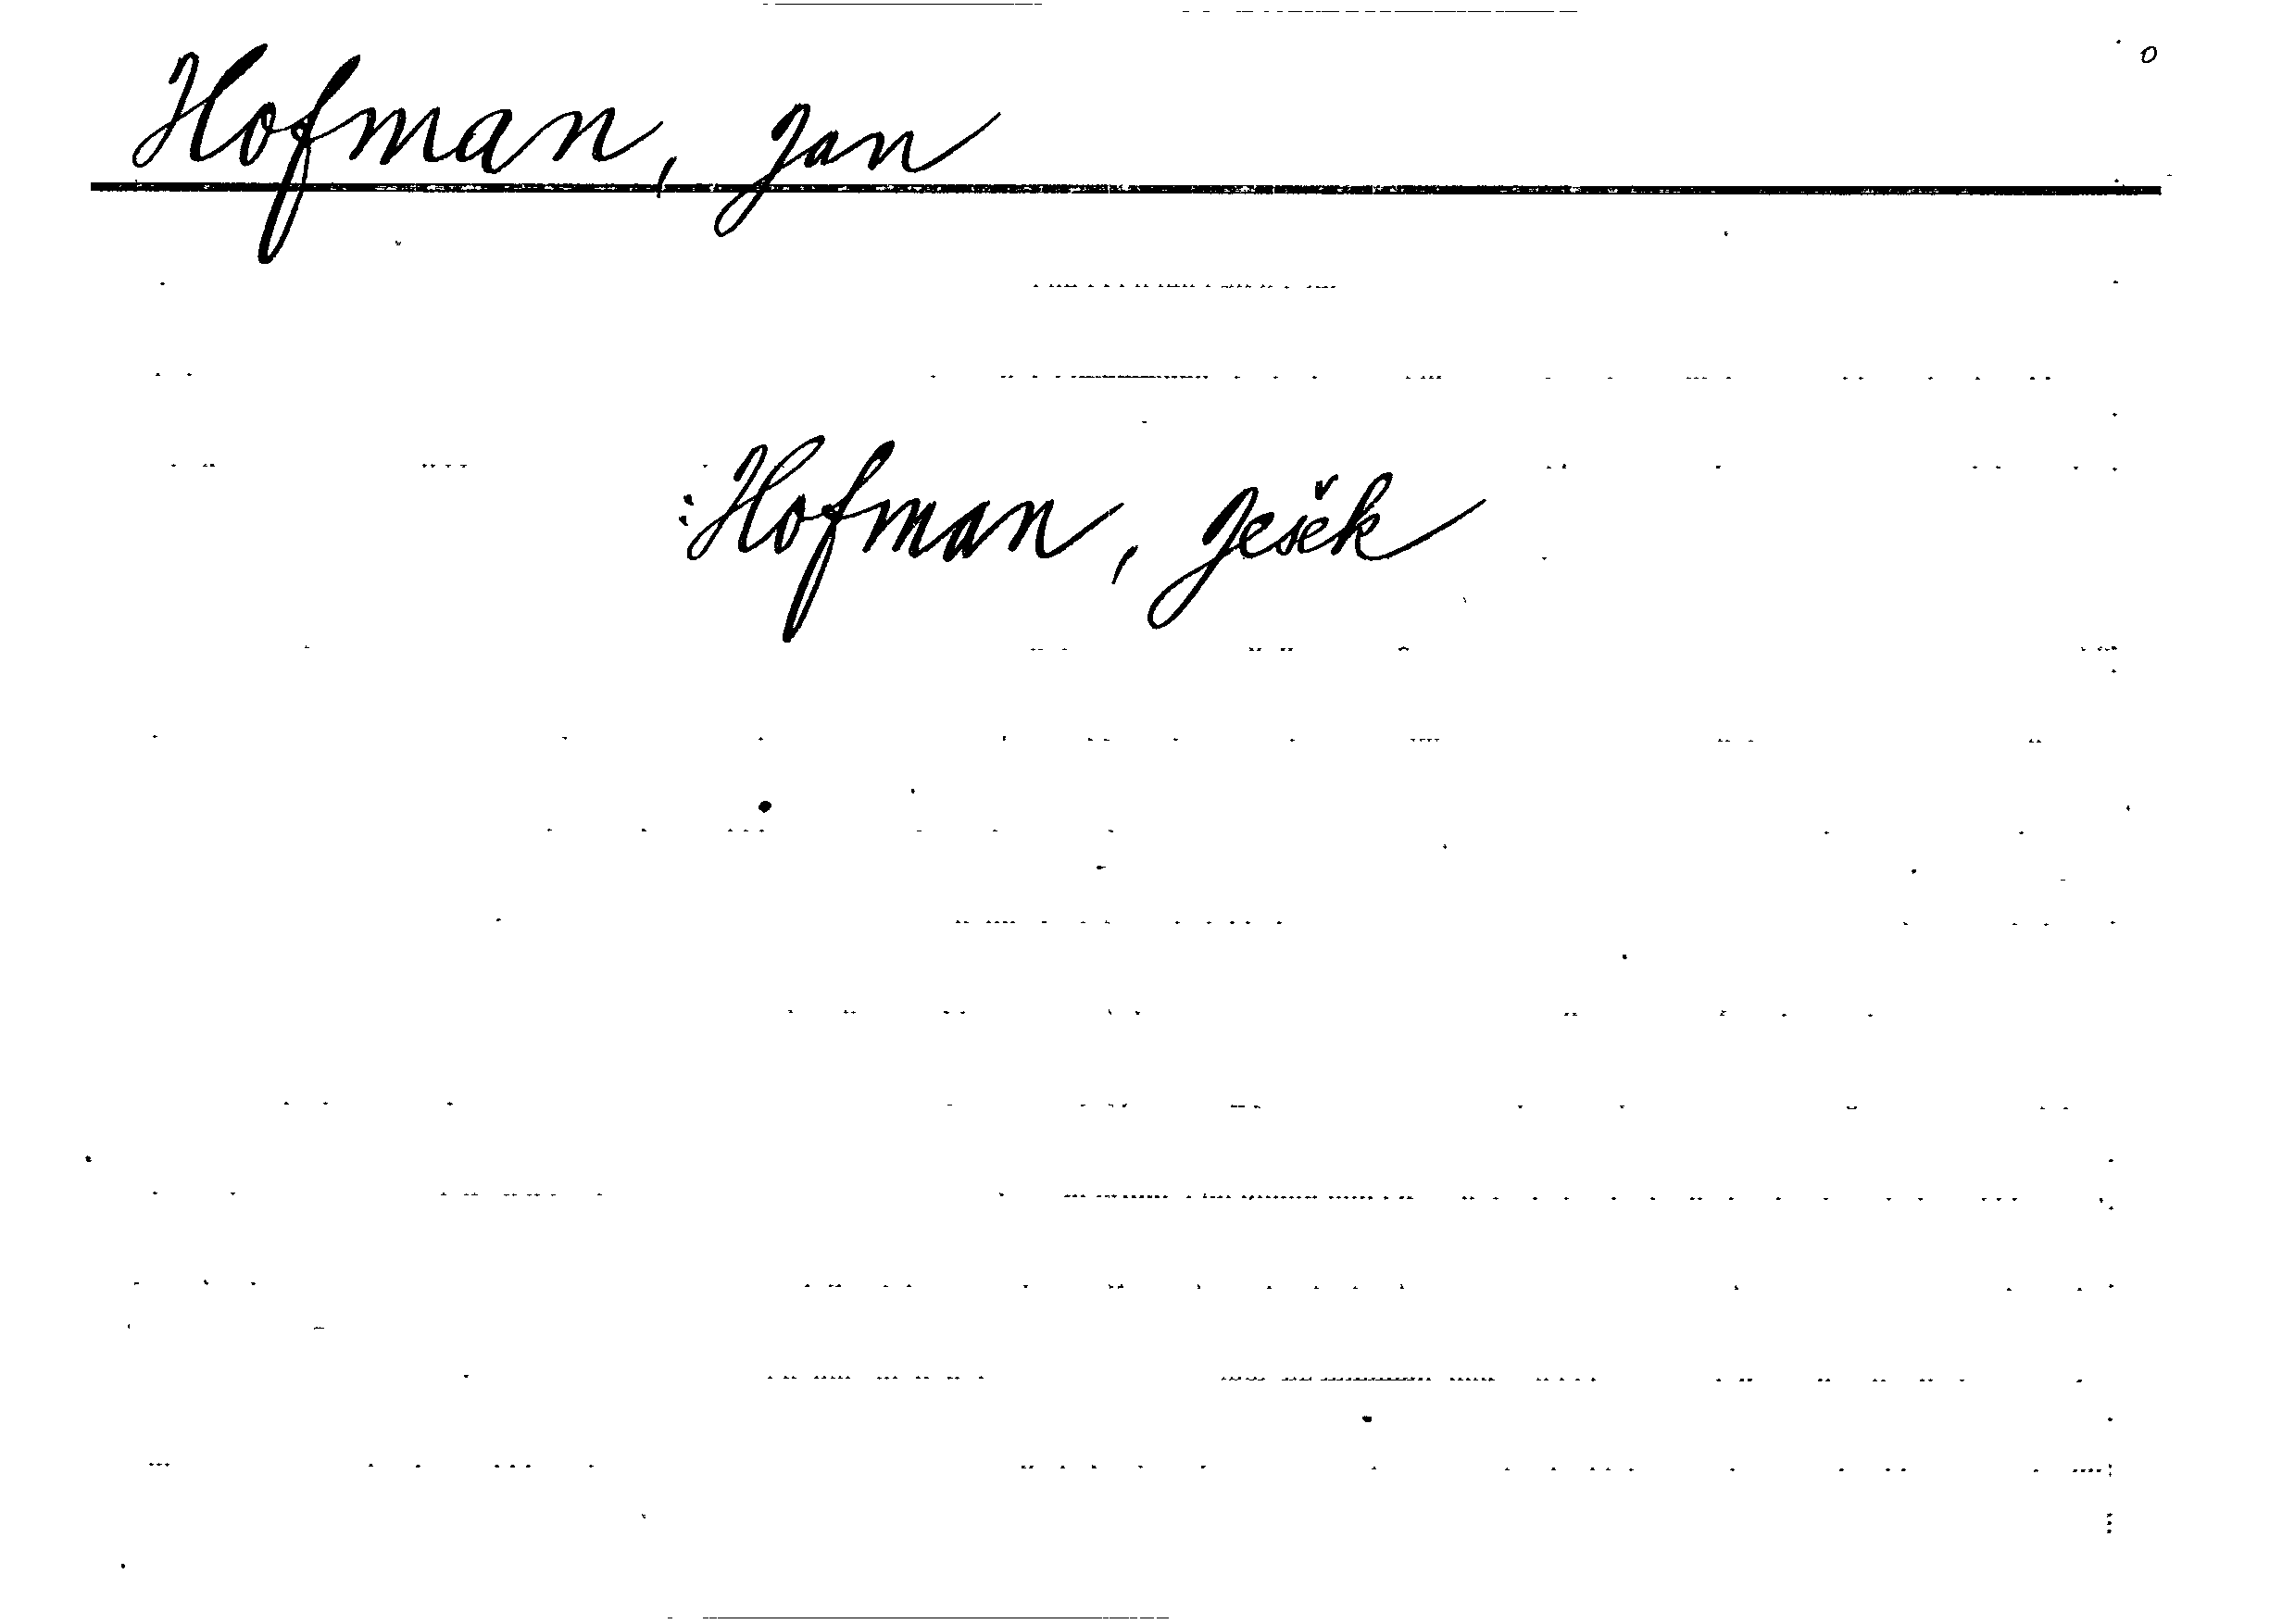 Hofman, Jan
:Hofman, Ješek